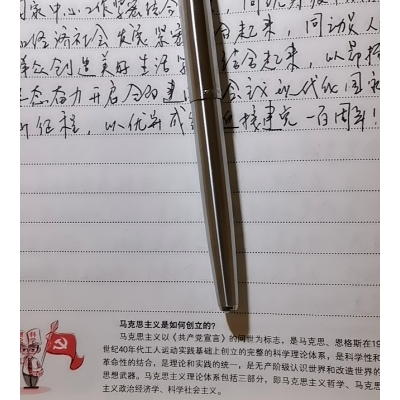 国家中心工作紧密结合
经济社会发展紧密结合起来，同动员人
群众创造美好生活 结合起来，以昂扬
姿态奋力开启全面建 会主义现代化国家
新征程，以优异成绩迎接建党一百周年！
马克思主义是如何创立的？
马克思主义以《共产党宣言》的问世为标志，是马克思、恩格斯在19
世纪40年代工人运动实践基础上创立的完整的科学理论体系，是科学性和
革命性的结合，是理论和实践的统一，是无产阶级认识世界和改造世界的
思想武器。马克思主义理论体系包括三部分，即马克思主义哲学、马克思
主义政治经济学、科学社会主义。